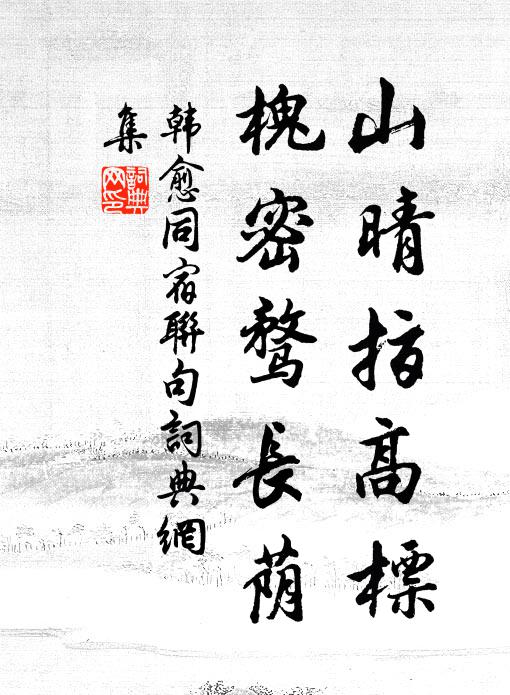 山晴指高標
槐密鶩長蔭
韓愈同宿聯句詞典網
集
詞典網印